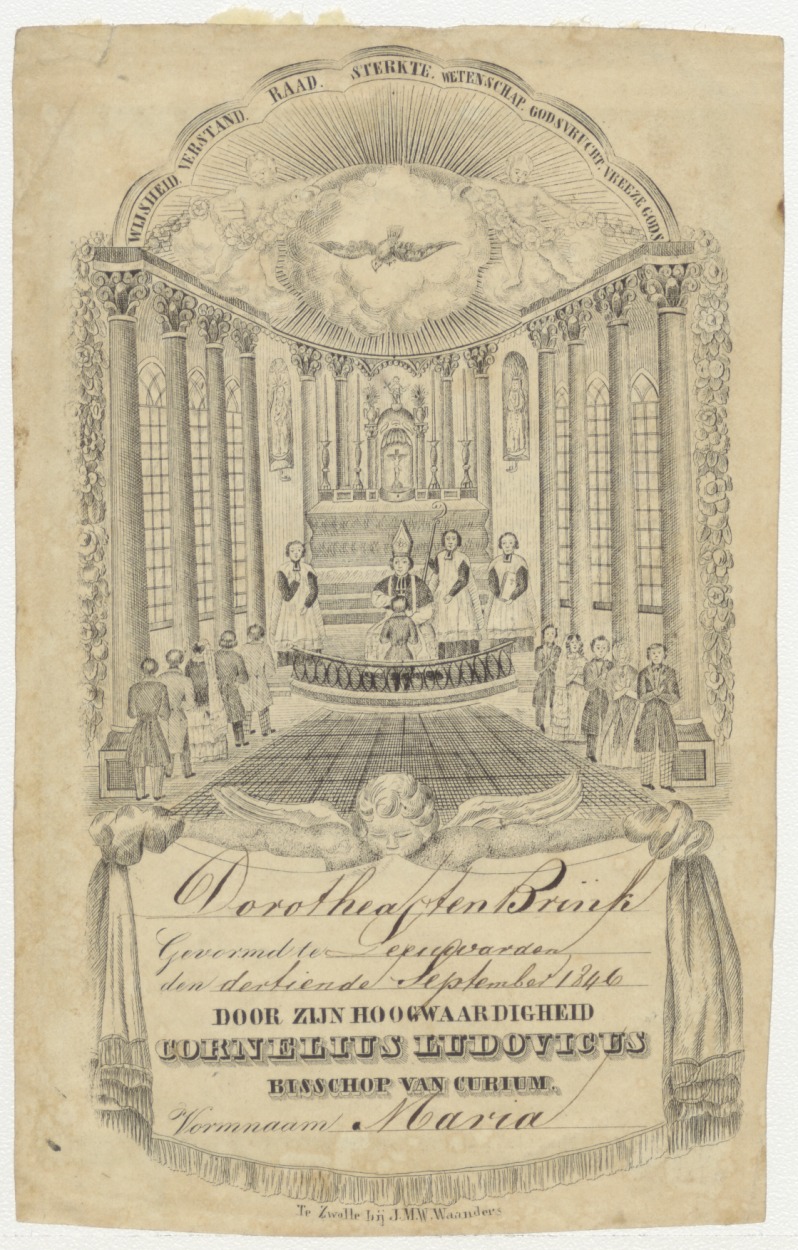 WIJSHEID VERSTAND. RAAD. STERKTE. WETENSCHAP. GODSVRUCHT. VREEZE GODS
Dorothea ten Brink
Gevormd te Leeuwarden
den dertiende September 1846
DOOR ZIJN HOOGWAARDIGHEID
CORNELIUS LUDOVICUS
BISSCHOP VAN CURIUM.
Vormnaam Maria
Te Zwolle bij J.M.W. Waanders